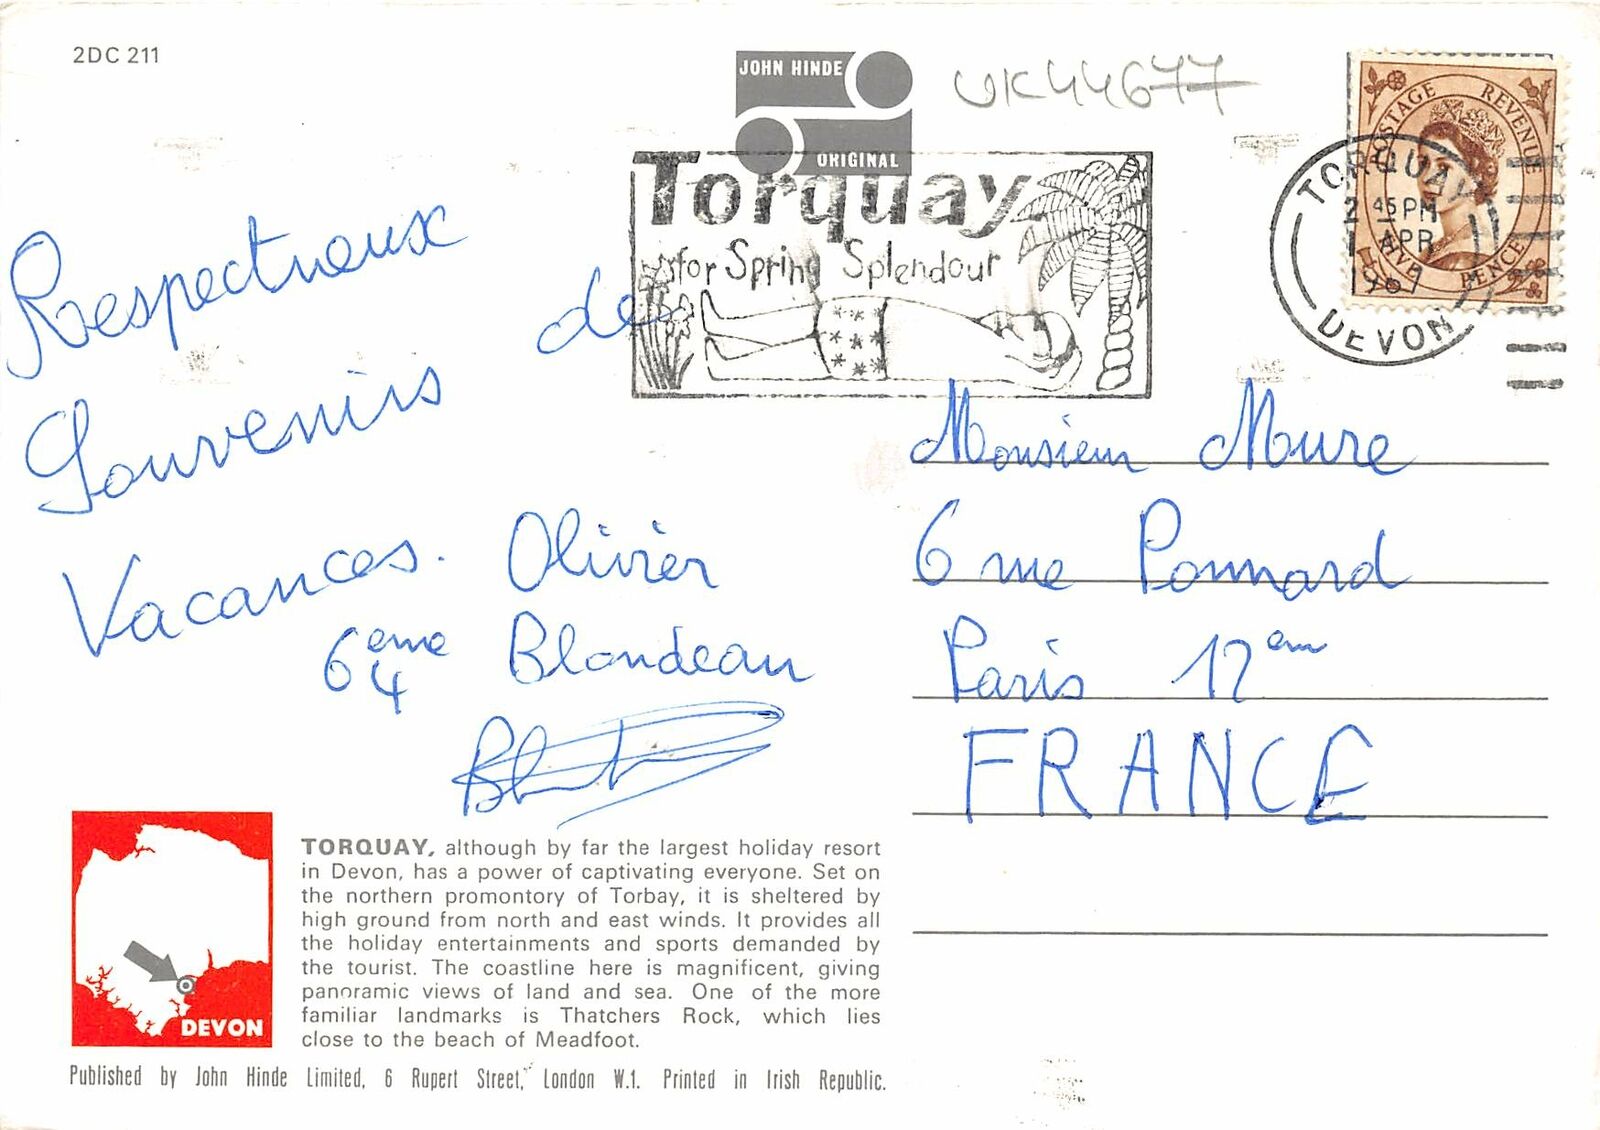 2DC 211
JOHN HINDE
ORIGINAL
UK44677
POSTAGE REVENUE
FIVE PENCE
TORQUAY
2 45 PM
1 APR
1967
DEVON
Torquay
for Spring Splendour
Respectueux
Souvenirs de
Vacances. Olivier
6eme 4 Blondeau
Monsieur Mure
6 rue Pommard
Paris 12em
FRANCE
DEVON
TORQUAY, although by far the largest holiday resort
in Devon, has a power of captivating everyone. Set on
the northern promontory of Torbay, it is sheltered by
high ground from north and east winds. It provides all
the holiday entertainments and sports demanded by
the tourist. The coastline here is magnificent, giving
panoramic views of land and sea. One of the more
familiar landmarks is Thatchers Rock, which lies
close to the beach of Meadfoot.
Published by John Hinde Limited, 6 Rupert Street, London W.1. Printed in Irish Republic.